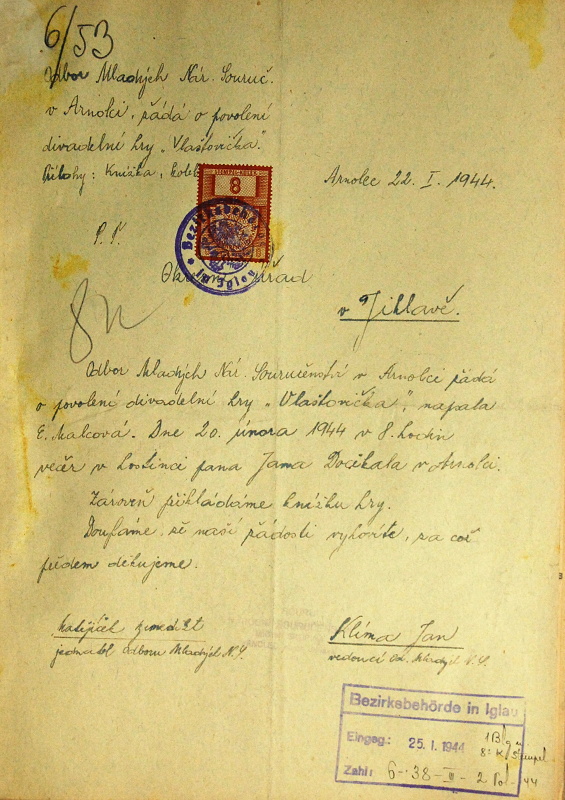 6/53
Odbor Mladých Nár. Souruč.
v Arnolci, žádá o povolení
divadelní hry „Vlaštovička“.
Přílohy: Knížka, kolek
STEMPEL-KOLEK
8
Arnolec 22. I. 1944.
P. T.
Bezirksbehörde
in Iglau
Okr úřad
v Jihlavě.
Odbor Mladých Nár. Souručenství v Arnolci žádá
o povolení divadelní hry „Vlaštovička“, napsala
E. Malcová. Dne 20. února 1944 v 8. hodin
večer v hostinci pana Jana Dočkala v Arnolci.
Zároveň přikládáme knížku hry.
Doufáme, že naší žádosti vyhovíte, za což
předem děkujeme.
Klíma Jan
jednatel odboru Mladých N. S.
vedoucí od. Mladých N. S.
Bezirksbehörde in Iglau
Eingeg.: 25. I. 1944
Zahl: 6-38-III-2 Pol-44
8: K Stempel